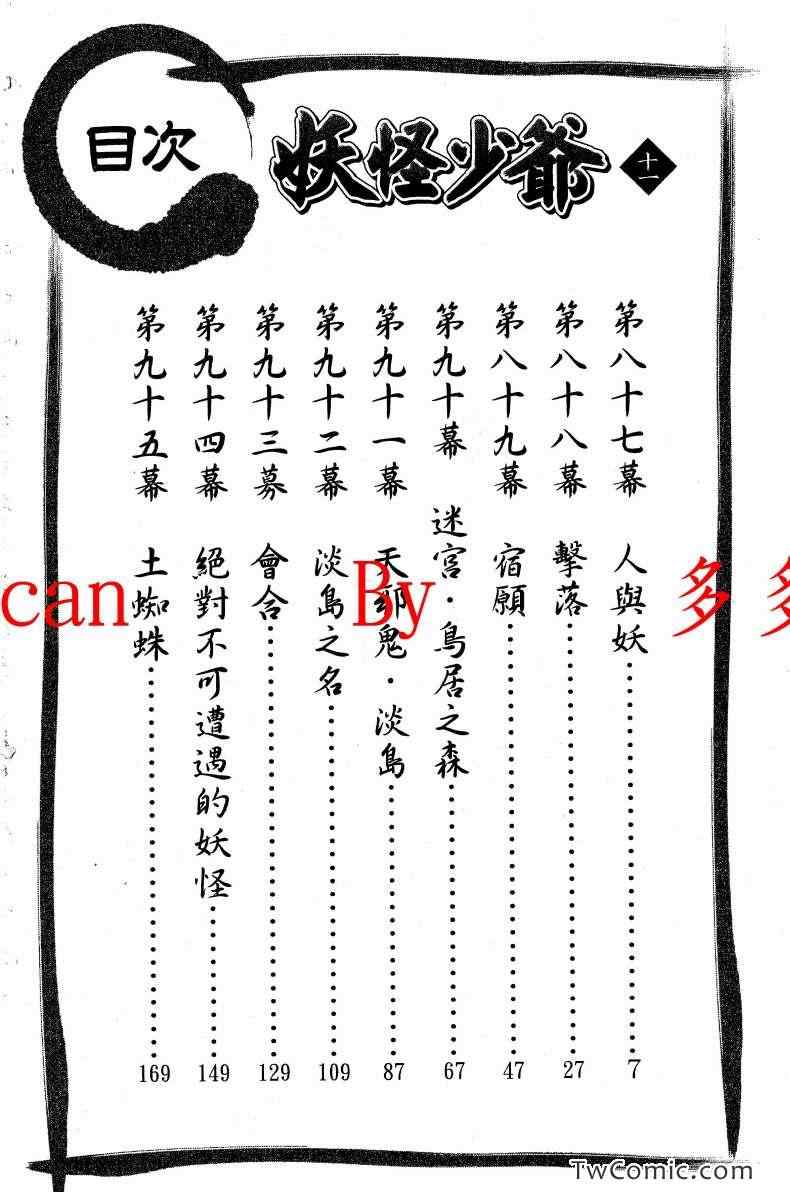 目次
妖怪少爺
十一
第八十七幕 人與妖 7
第八十八幕 擊落 27
第八十九幕 宿願 47
第九十幕 迷宮・鳥居之森 67
第九十一幕 天邪鬼・淡島 87
第九十二幕 淡島之名 109
第九十三幕 會合 129
第九十四幕 絕對不可遭遇的妖怪 149
第九十五幕 土蜘蛛 169
can By 多多
TwComic.com